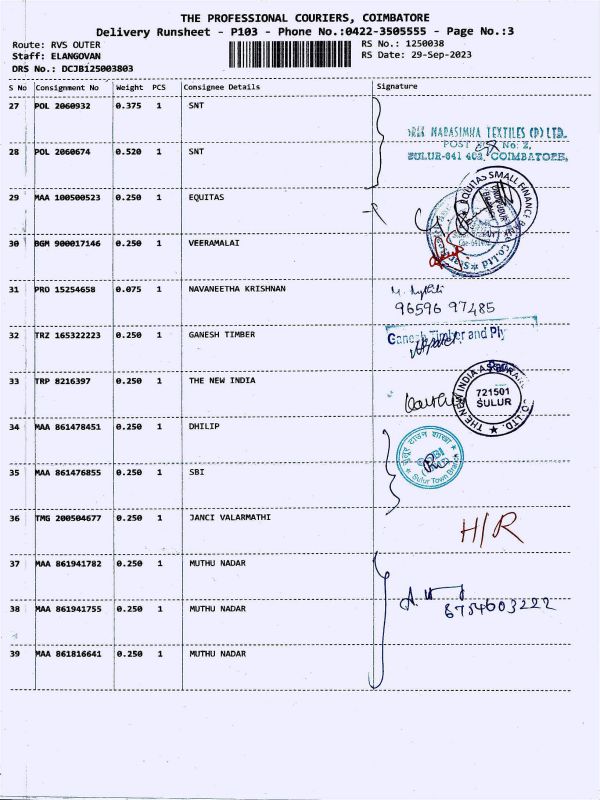 THE PROFESSIONAL COURIERS, COIMBATORE
Delivery Runsheet - P103 - Phone No.:0422-3505555 - Page No.:3
Route: RVS OUTER
RS No.: 1250038
Staff: ELANGOVAN
RS Date: 29-Sep-2023
DRS No.: DCJB125003803
S No Consignment No Weight PCS Consignee Details Signature
27 POL 2060932 0.375 1 SNT
NARASIMHA TEXTILES (P) LTD.
POST No: 2,
28 POL 2060674 0.520 1 SNT
SULUR-641 402, COIMBATORE,
29 MAA 100500523 0.250 1 EQUITAS
EQUITAS SMALL FINANCE BANK
30 BGM 900017146 0.250 1 VEERAMALAI
Co.Ltd
31 PRO 15254658 0.075 1 NAVANEETHA KRISHNAN
96596 97485
32 TRZ 165322223 0.250 1 GANESH TIMBER
Ganesh Timber and Ply
33 TRP 8216397 0.250 1 THE NEW INDIA
THE NEW INDIA ASSURANCE CO.LTD.
721501
SULUR
34 MAA 861478451 0.250 1 DHILIP
35 MAA 861476855 0.250 1 SBI
Sulur Town Branch
36 TMG 200504677 0.250 1 JANCI VALARMATHI
H/R
37 MAA 861941782 0.250 1 MUTHU NADAR
38 MAA 861941755 0.250 1 MUTHU NADAR
8754603222
39 MAA 861816641 0.250 1 MUTHU NADAR